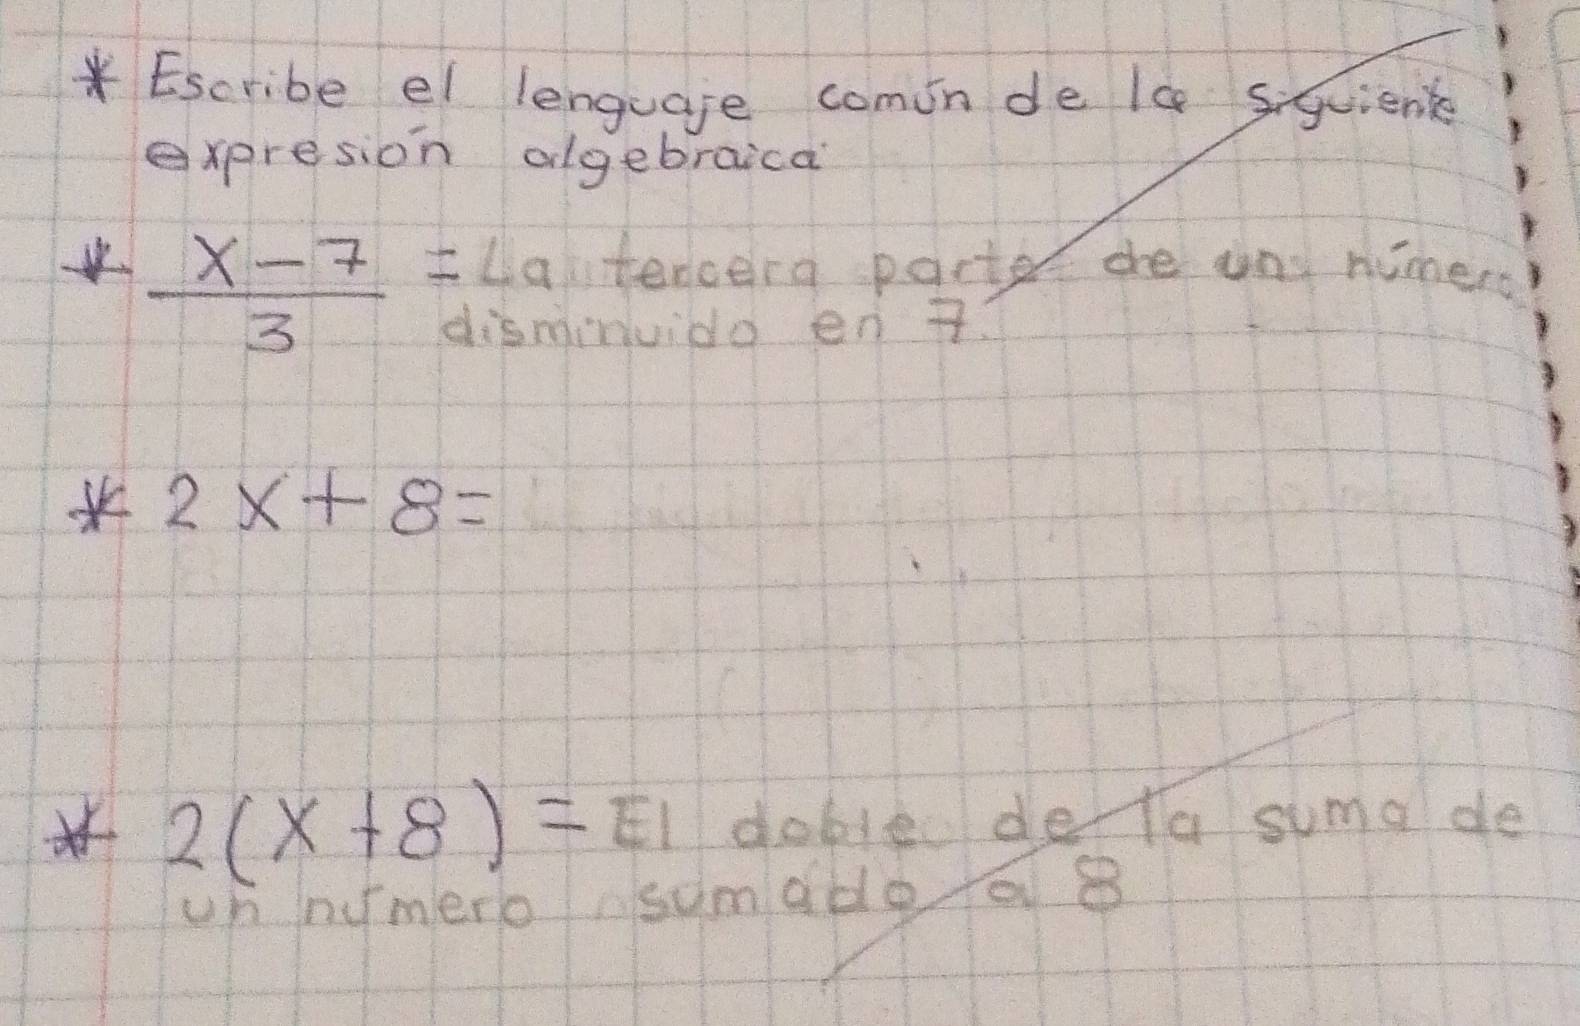 * Escribe el lenguaje común de la siguiente
expresión algebraica
* x-7 = La tercera parte de un número
3 disminuido en 7.
* 2x+8=
* 2(x+8)= El doble de la suma de
un número sumado a 8